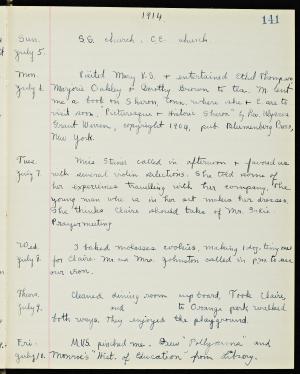 1914
141
Sun. S.S. church, C.E. church.
July 5.
Mon. Visited Mary V.S. & entertained Ethel Thompson,
July 6. Marjorie Oakley & Dorothy Brown to tea. M. sent
me a book on Sharon, Conn. where she & E. are to
visit soon. "Picturesque & Historic Sharon" by Rev. Ulysses
Grant Warren, copyright 1904, pub. Blumenberg Press,
New York.
Tues. Miss Stiner called in afternoon & favored us
July 7. with several violin selections. She told some of
her experiences travelling with her company. The
young man who is in her act makes her dresses.
She thinks Claire should take of Mr.
Prayermeeting
Wed. I baked molasses cookies, making 1 doz. tiny ones
July 8. for Claire. Mr. and Mrs. Johnston called in p.m. to see
our
Thurs. Cleaned dining room cupboard. Took Claire,
July 9. and to Orange park walked
both ways. They enjoyed the playground.
Fri. M.V.S. phoned me. Drew "Pollyanna" and
July 10. Monroe's "Hist. of Education" from Library.